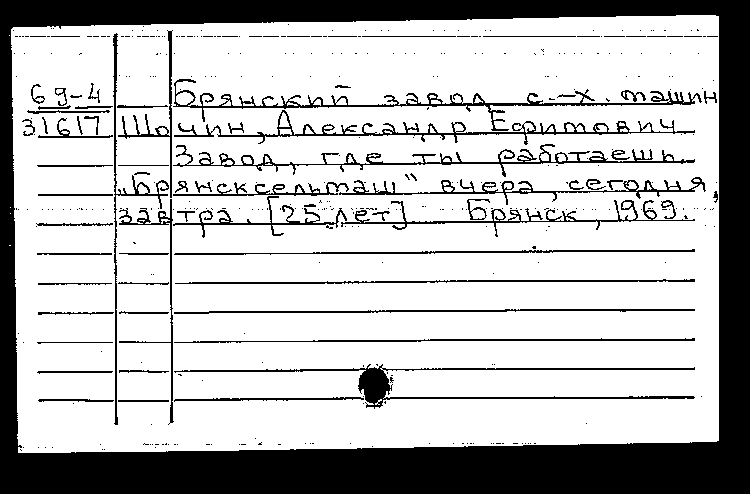 69-4 Брянский завод с.-х. машин
31617 Шочин, Александр Ефимович
Завод, где ты работаешь.
„Брянсксельмаш" вчера, сегодня,
завтра. [25 лет] Брянск, 1969.